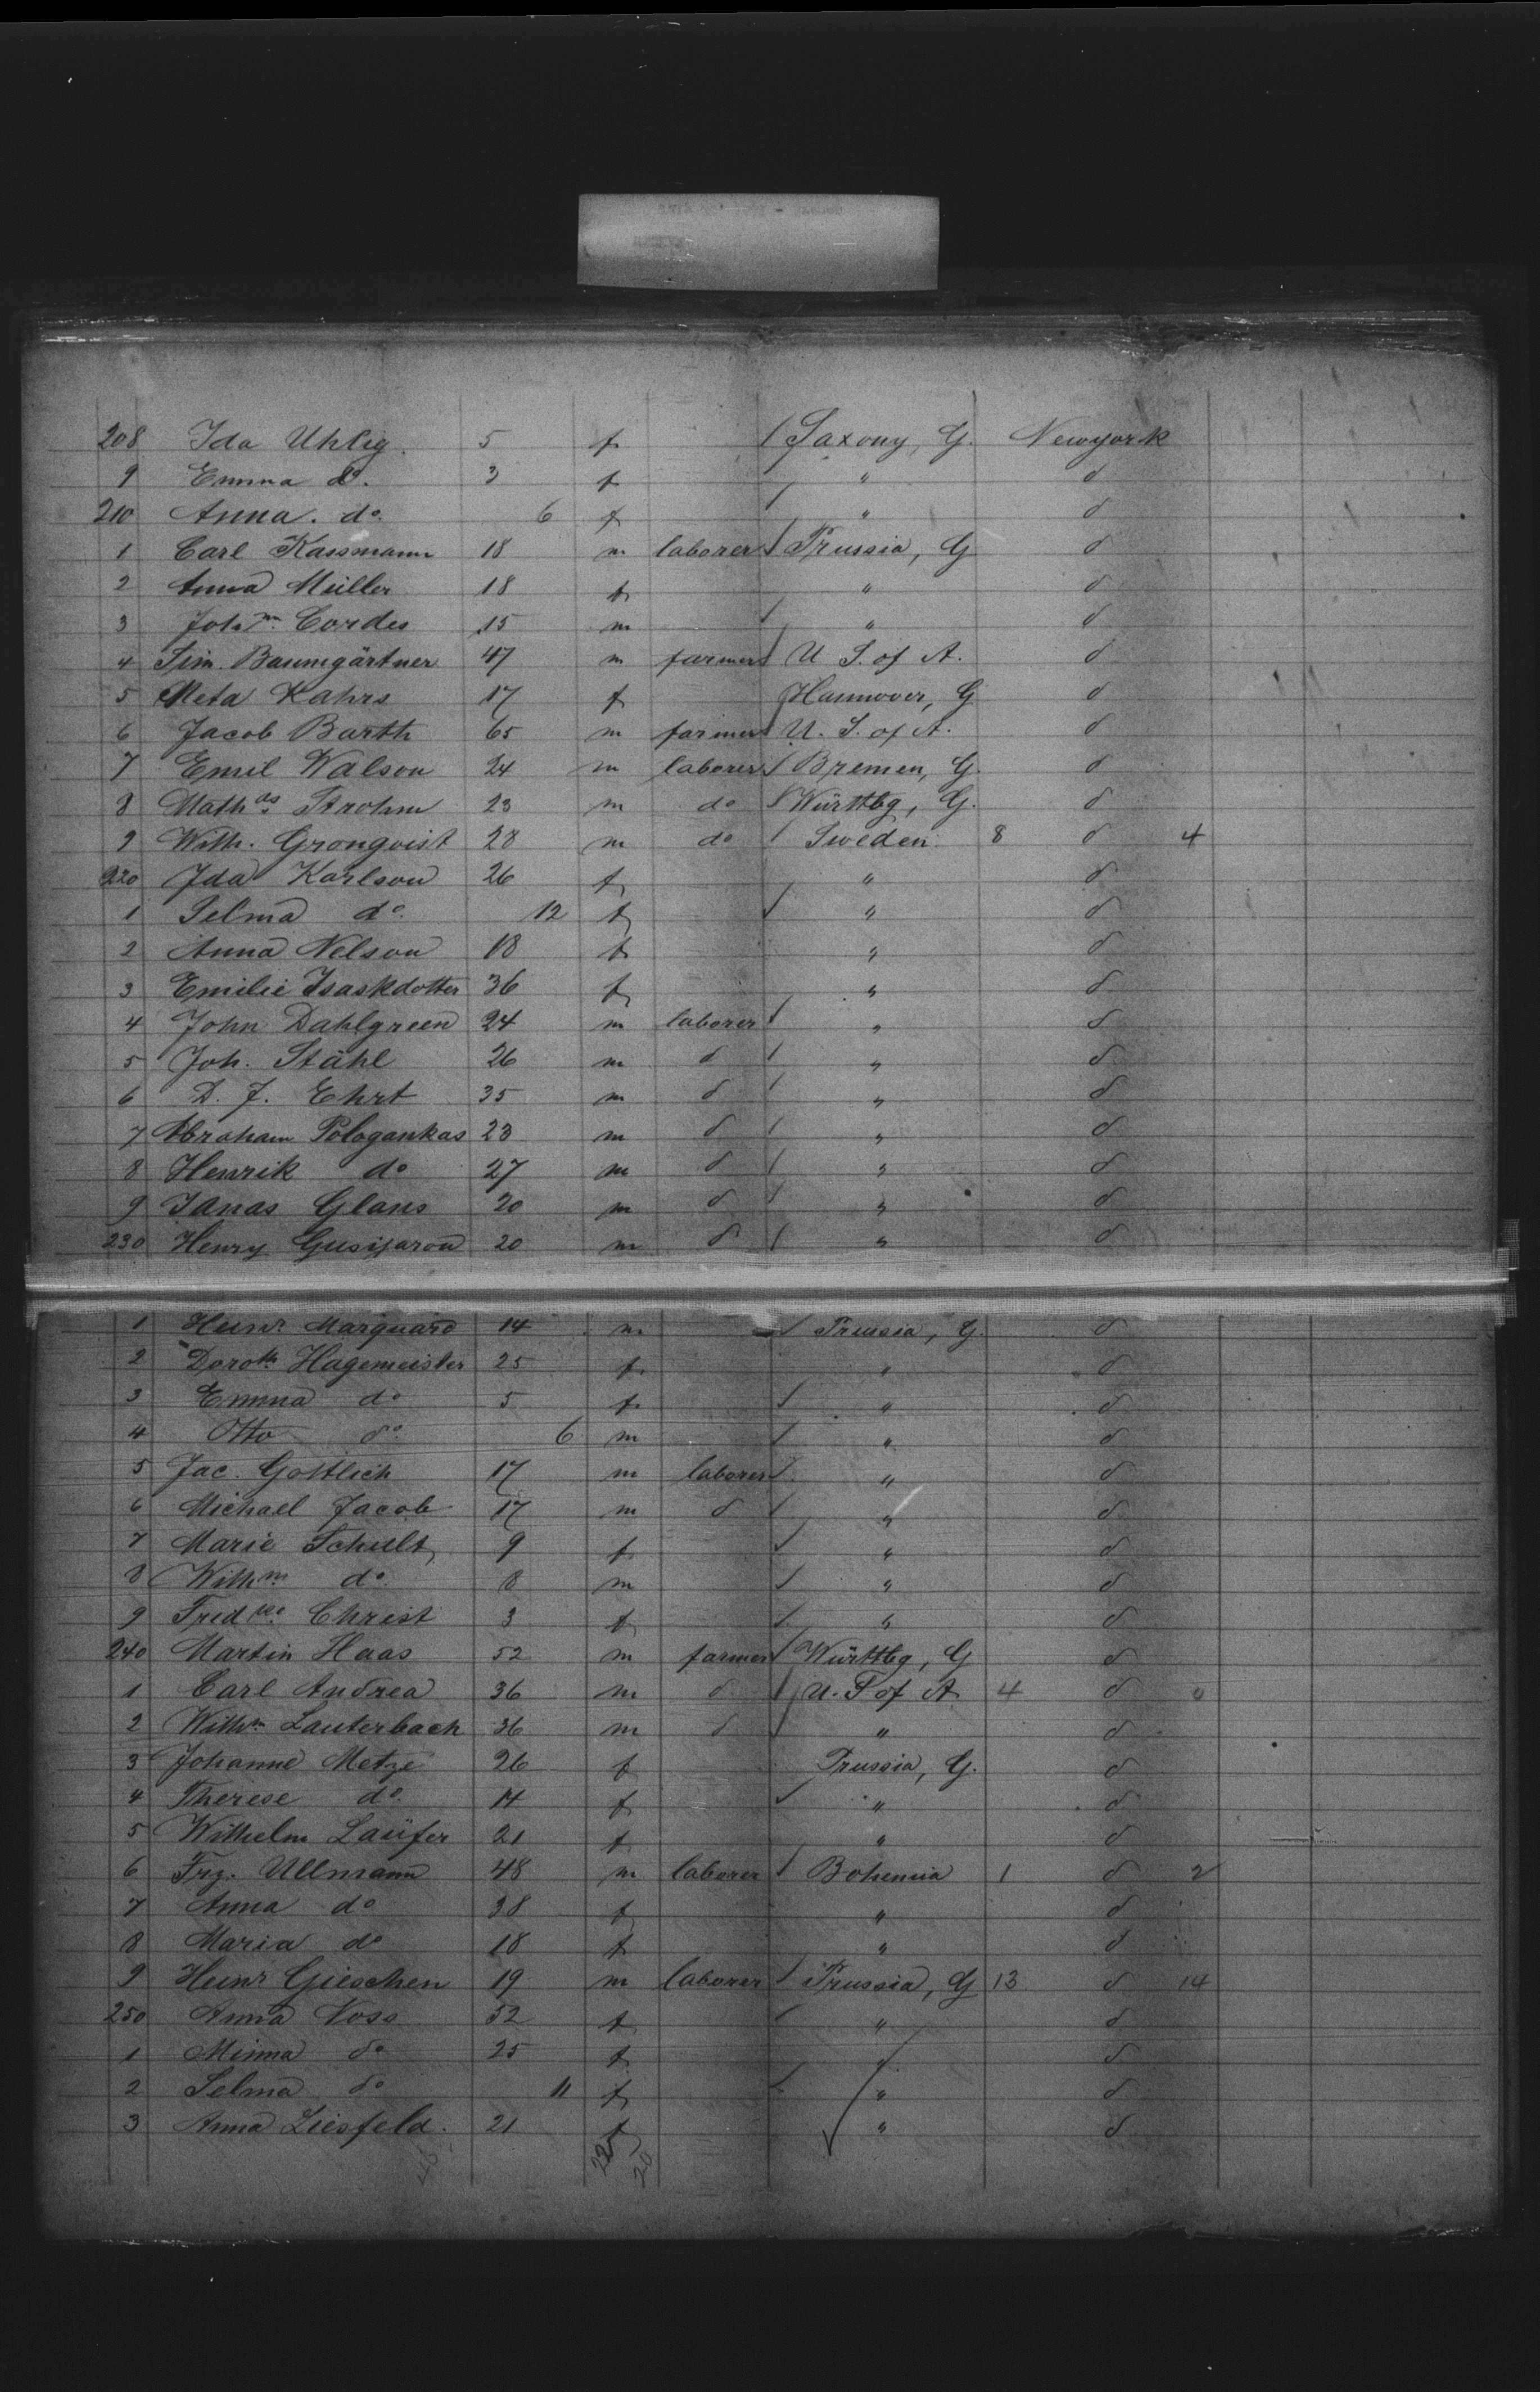 208 Ida Uhlig. 5 f Saxony, G. Newyork
9 Emma do. 3 f " d
210 Anna. do. 6 f " d
1 Carl Kassmann 18 m laborer Prussia, G d
2 Anna Müller 18 f " d
3 Johnn. Cordes 15 m " d
4 Sim. Baumgärtner 47 m farmer U S. of A. d
5 Meta Kahrs 17 f Hannover, G d
6 Jacob Barth 65 m farmer U. S. of A. d
7 Emil Walson 24 m laborer Bremen, G. d
8 Mathds Strohm 23 m do Württbg, G. d
9 Wilh. Gronqvist 28 m do Sweden 8 d 4
220 Ida Karlson 26 f " d
1 Selma do. 12 f " d
2 Anna Nelson 18 f " d
3 Emilie Isaskdotter 36 f " d
4 John Dahlgreen 24 m laborer " d
5 Joh. Stähl 26 m d " d
6 D. J. Ehrt 35 m d " d
7 Abraham Pologankas 23 m d " d
8 Henrik do 27 m d " d
9 Janas Glans 20 m d " d
230 Henry 20 m d " d
1 Heinr. Marquard 14 m Prussia, G. d
2 Doroth. Hagemeister 25 f. " d
3 Emma do 5 f. " d
4 Otto do. 6 m " d
5 Jac. Gottlich 17 m laborer " d
6 Michael Jacob 17 m d " d
7 Marie Schult, 9 f. " d
8 Wilhm. do. 8 m " d
9 Fredke. Christ 3 f " d
240 Martin Haas 52 m farmer Württbg, G d
1 Carl Andrea 36 m d U. S of A. 4 d 0
2 Wilhm. Lauterbach 36 m d " d
3 Johanne Metze 26 f Prussia, G. d
4 Therese do. 14 f " d
5 Wilhelm Laüfer 21 f " d
6 Frz. Ullmann 48 m laborer Bohemia 1 d 2
7 Anna do 38 f " d
8 Maria do 18 f " d
9 Heinr Gieschen 19 m laborer Prussia, G 13 d 14
250 Anna Voss 52 f " d
1 Minna do 25 f. " d
2 Selma do 11 f " d
3 Anna Liesfeld. 21 f " d